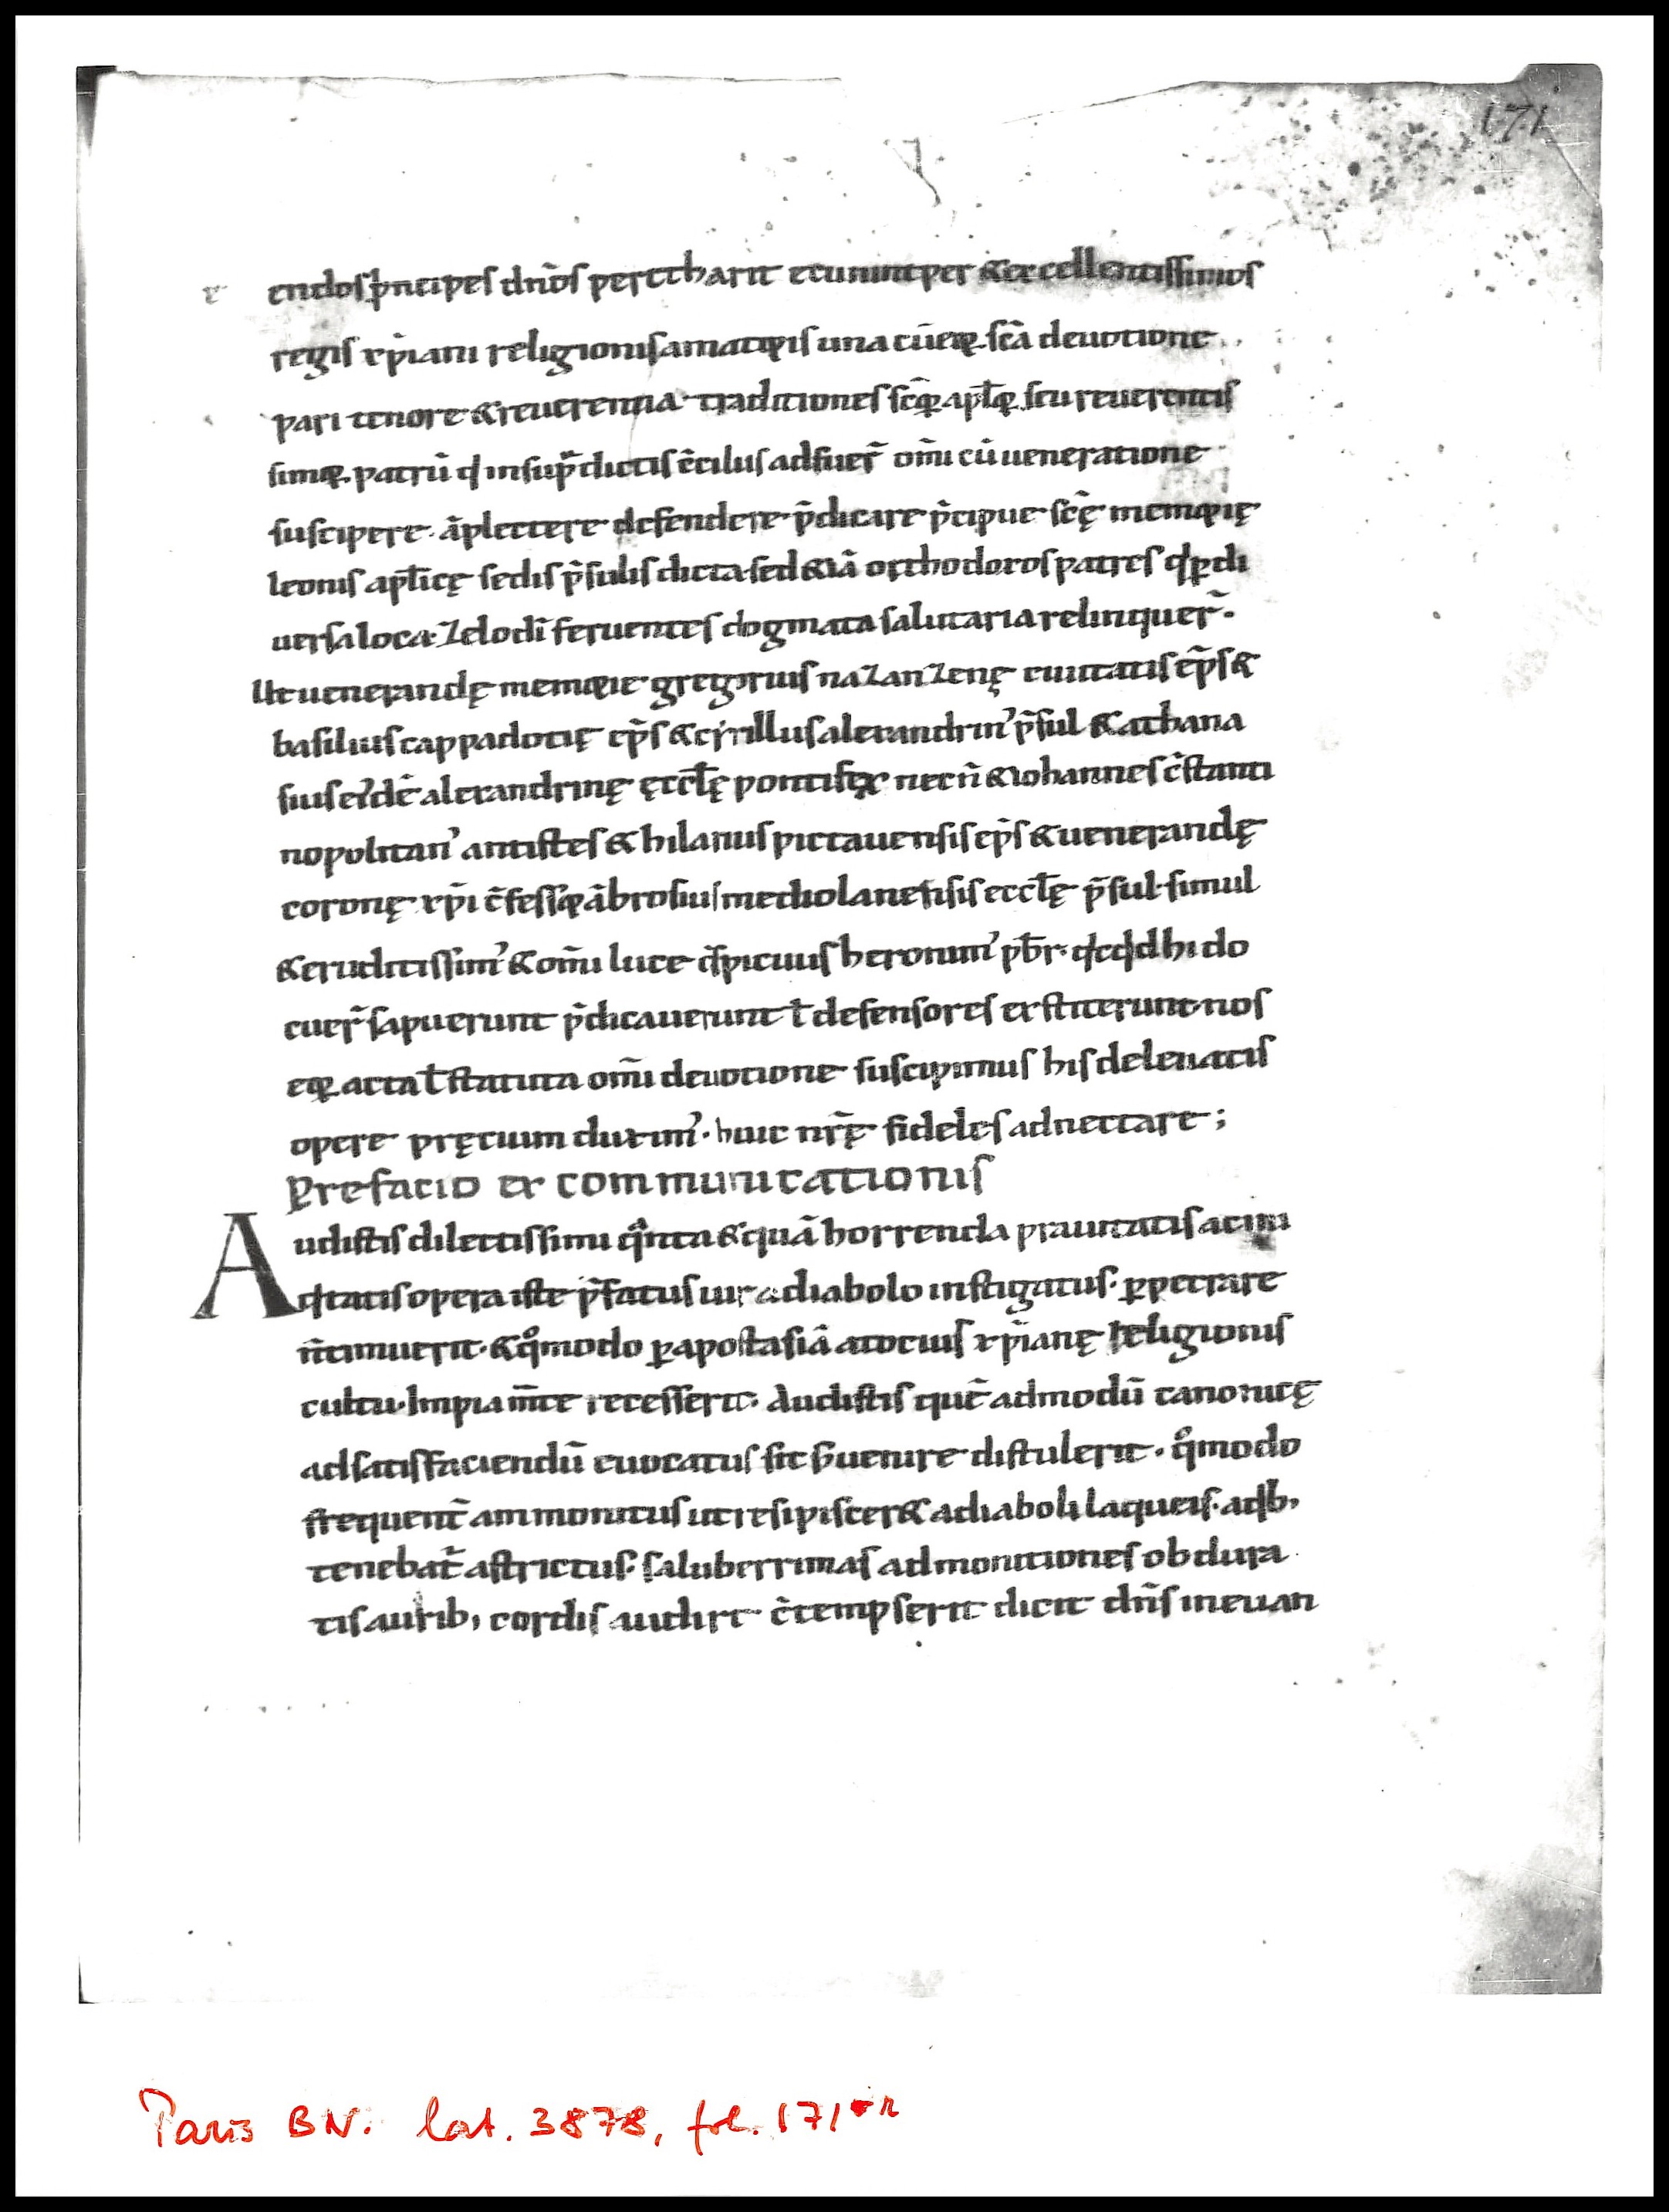 171
endos p̃ncipes dños pertcharit ecumintper & excellentissimos
regis xp̃iani religionis amatoris una cũ eoꝝ sc̃a deuotione
pari tenore & reuerentia · traditiones sc̃oꝝ apl̃oꝝ seu reuerentis
simoꝝ patrũ q̇ in sup̃dictis c̃cilus adfuer̃ om̃i cũ ueneratione
suscipere · ãplectere defendere p̃dicare p̃cipue sc̃ę memorię
leonis apl̃icę sedis p̃sulis dicta sed &iã orthodoxos patres q̇ ꝑ di
uersa loca · zelo dĩ feruentes dogmata salutaria relinquer̃ ·
Ut uenerandę memorie gregorius nazanzenę ciuitatis ep̃s &
basilius cappadocię ep̃s & cyrillus alexandrin' p̃sul & athana
sius eı'dẽ alexandrinę ęccl̃ę pontifex necñ & iohannes c̃stanti
nopolitan' antistes & hilarius pictauensis ep̃s & uenerandę
coronę xp̃i c̃fessor ãbrosius mediolanensis eccl̃ę p̃sul · simul
& eruditissim' & om̃i luce c̃spicuus heronim' pb̃r · q̇cq̇d hi do
cuer̃ sapuerunt p̃dicauerunt ł defensores extiterunt · nos
eoꝝ acta ł statuta om̃i deuotione suscipimus his deleuatis
opere pręcium duxim' · huic nr̃ę fideles adnectare ;
Prefacio ex communicationis
Audistis dilectissimi q̃nta & quã horrenda prauitatis ac ini
q̇tatis opera iste p̃fatus uir a diabolo instigatus · ꝑpetrare
ñ timuerit · & q̊modo ꝑ apostasiã a tocius xp̃ianę religionis
cultu · Impiam̃te recesserit · Audistis quẽ admodũ canonicę
ad satisfaciendũ euocatus sit s; uenire distulerit · q̊modo
frequent̃ ammonitus ut resipiscer& a diaboli laqueis · a q̇b;
tenebat̃ astrictus · saluberrimas admonitiones obdura
tis aurib; cordis audire c̃tempserit dicit dñs in euan
Paris BN. lat. 3878, fol. 171 r